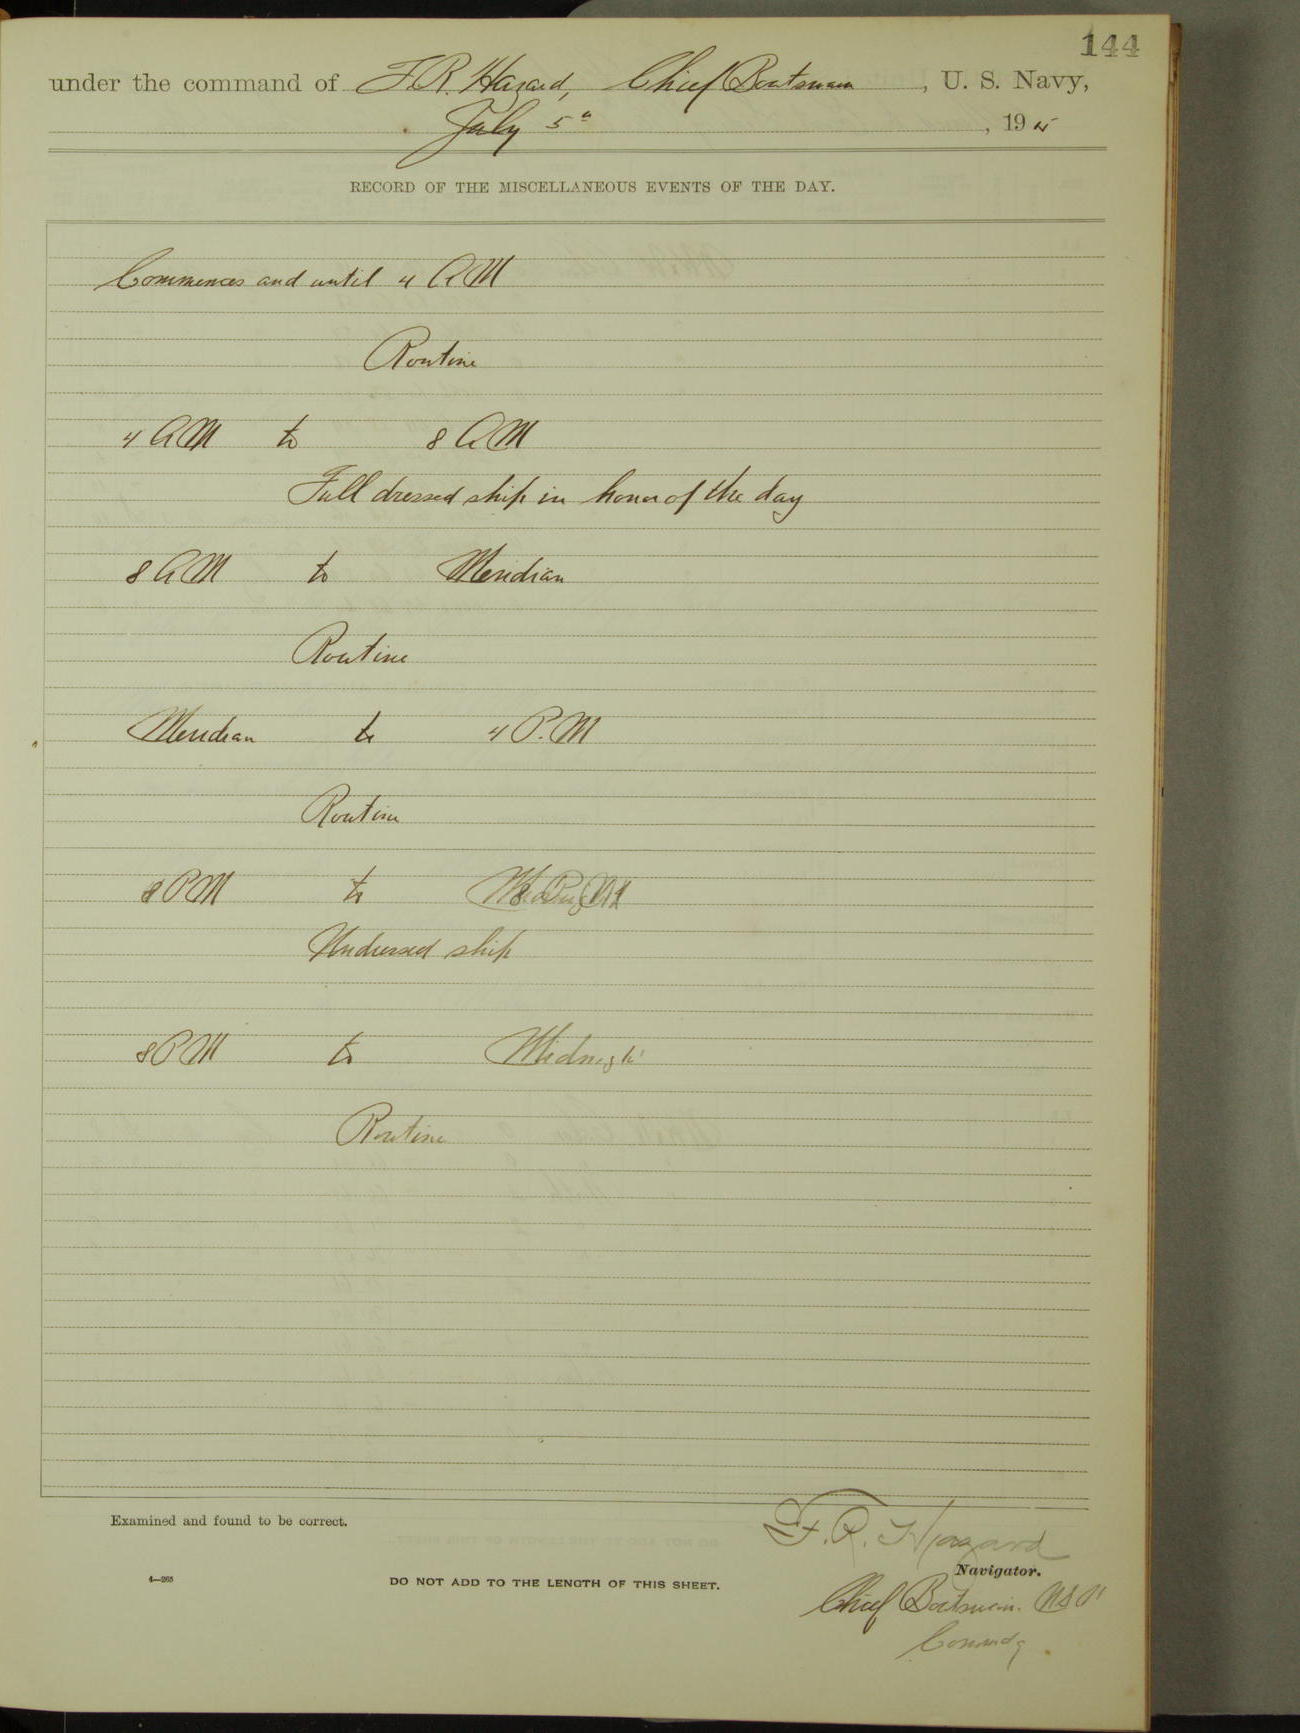 144
under the command of F. R. Hazard, Chief Boatswain, U. S. Navy,
July 5th, 1915
RECORD OF THE MISCELLANEOUS EVENTS OF THE DAY.
Commences and until 4 AM
Routine
4 AM to 8 AM
Full dressed ship in honor of the day
8 AM to Meridian
Routine
Meridian to 4 P.M
Routine
PM to 8 PM
Undressed ship
8 PM to Midnight
Routine
Examined and found to be correct.
F. R. Hazard
Navigator.
4—265
DO NOT ADD TO THE LENGTH OF THIS SHEET.
Chief Boatswain. USN
Comandg